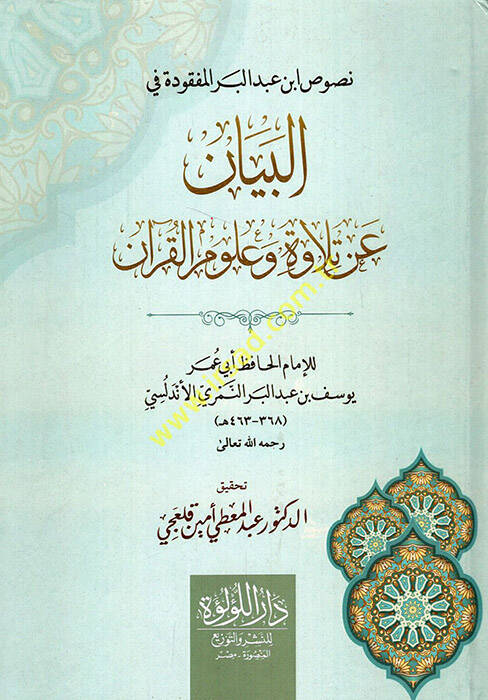 نصوص ابن عبد البر المفقودة في
البيان
عن تلاوة وعلوم القرآن
للإمام الحافظ أبي عمر
يوسف بن عبد البر النمري الأندلسي
(٣٦٨-٤٦٣هـ)
رحمه الله تعالى
تحقيق
الدكتور عبد المعطي أمين قلعجي
دار اللؤلؤة
للنشر والتوزيع
المنصورة - مصر